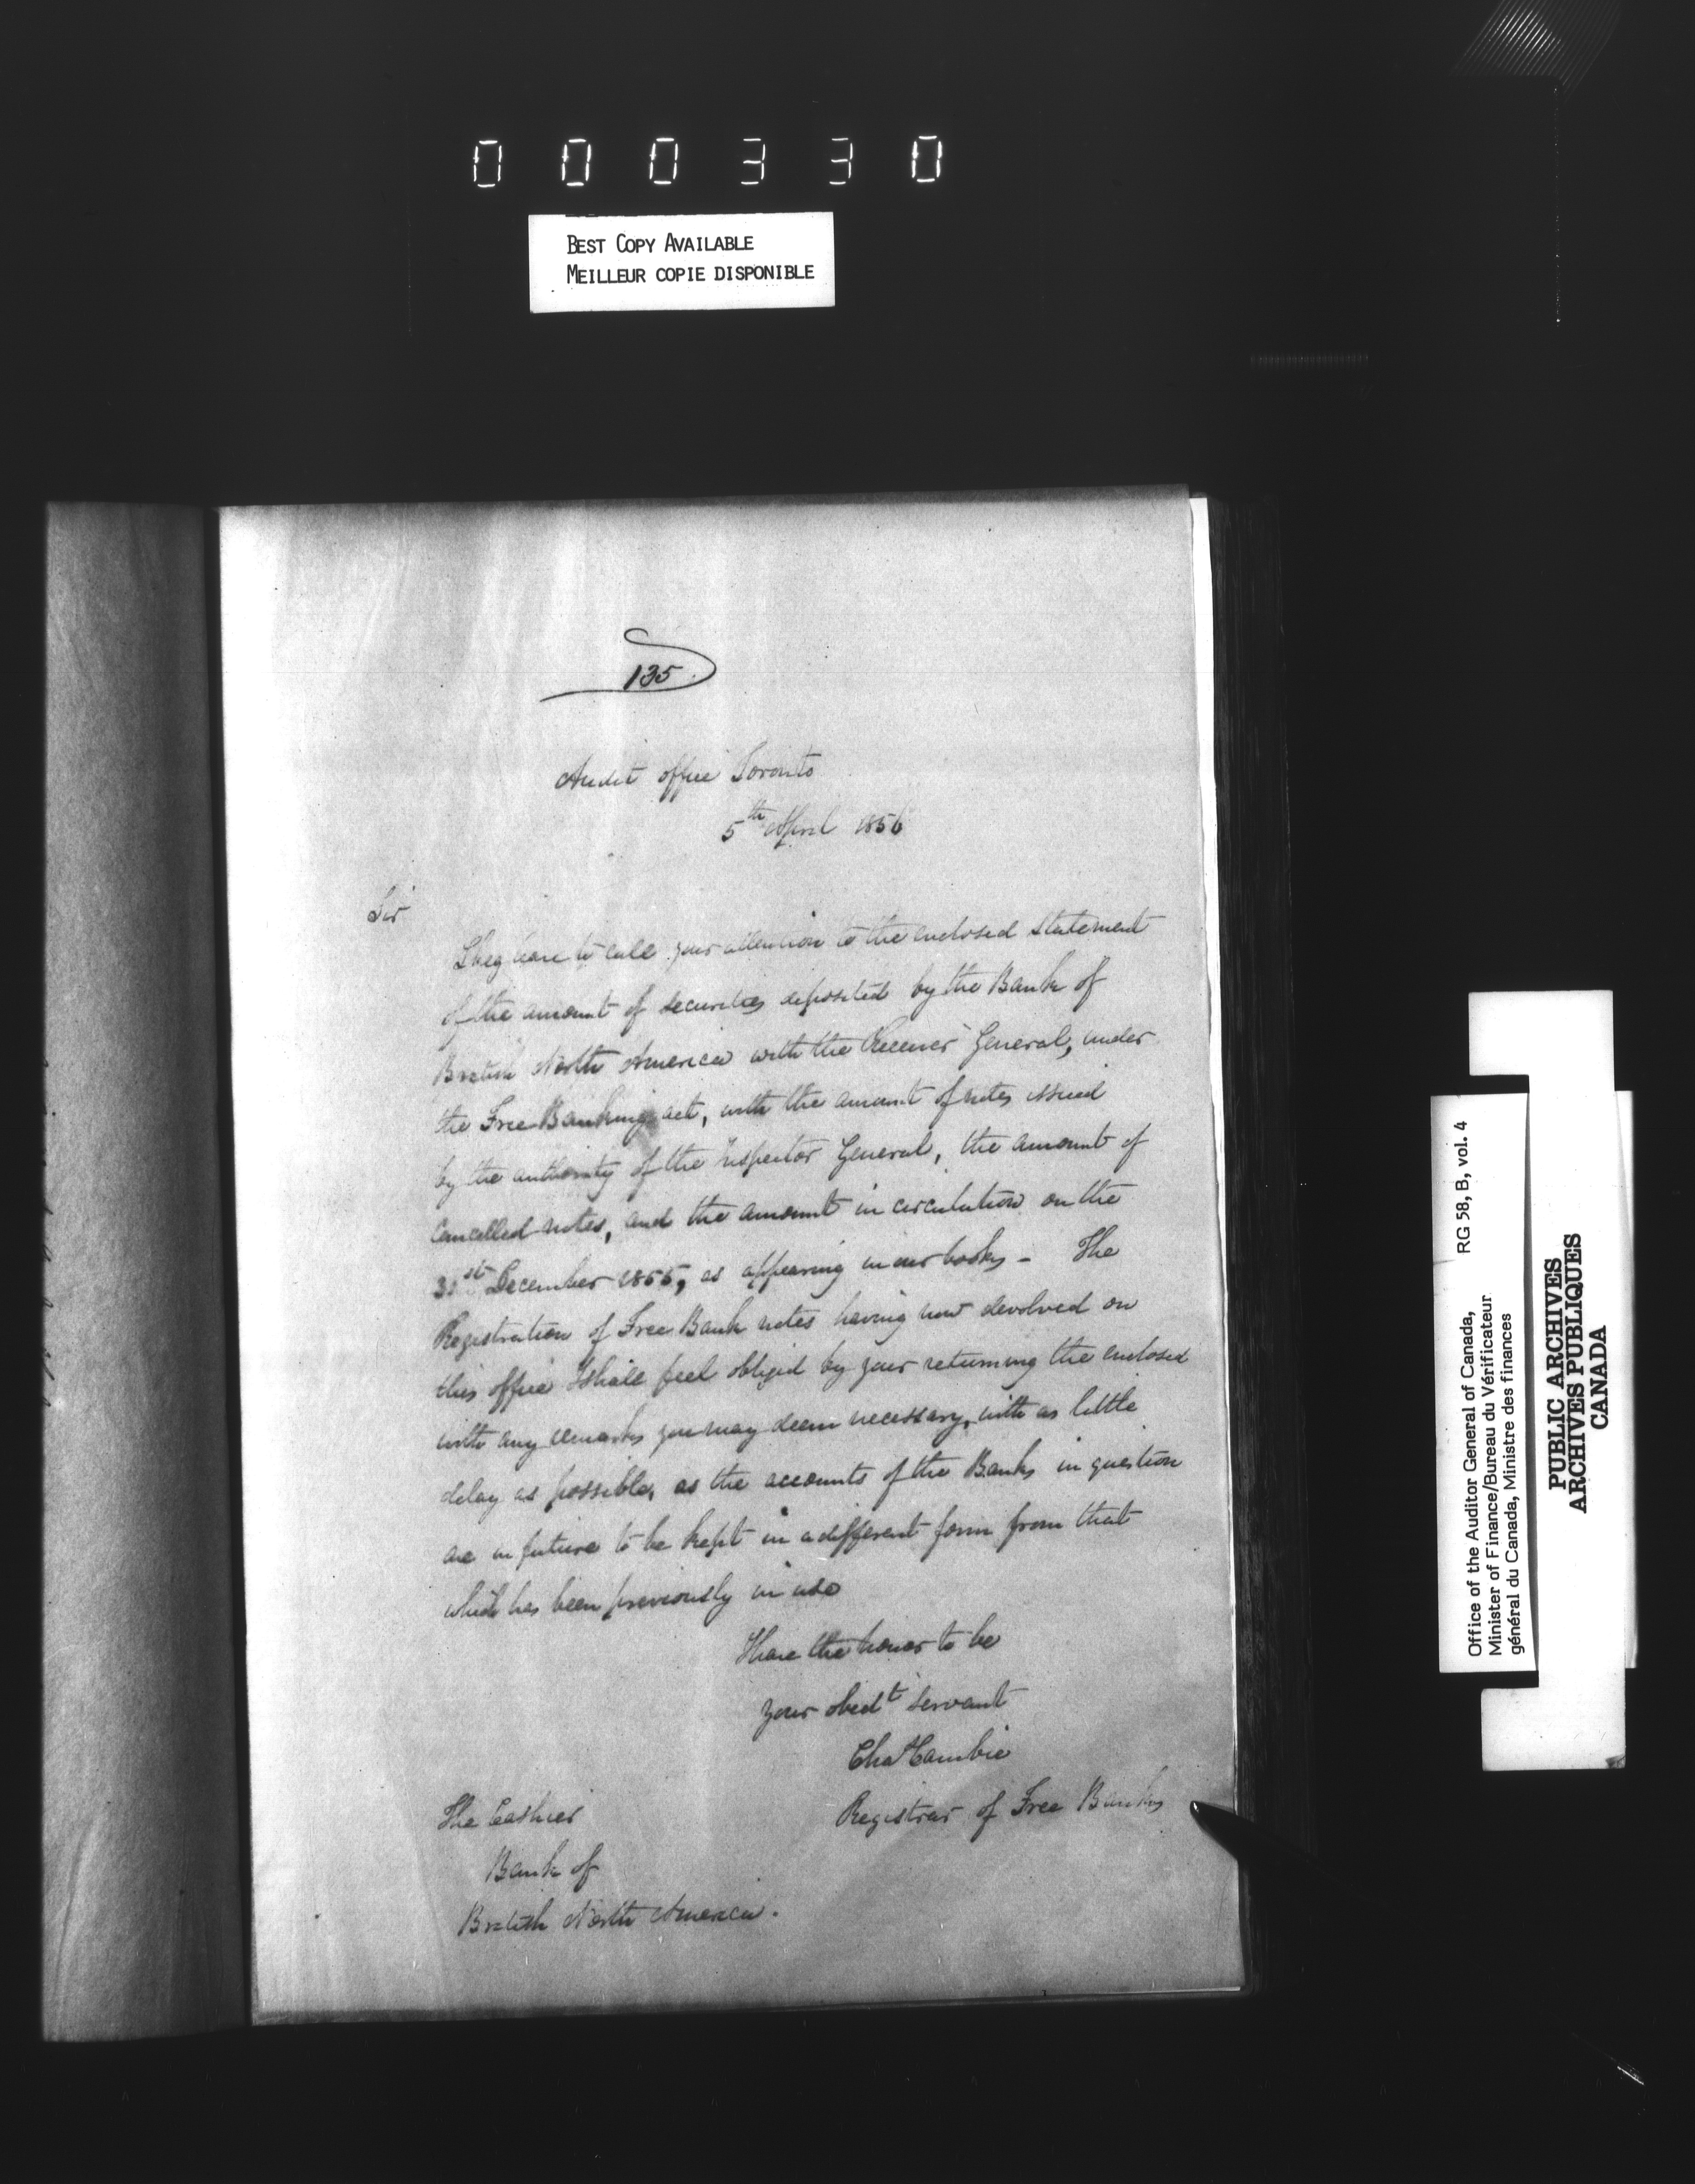 000330
BEST COPY AVAILABLE
MEILLEUR COPIE DISPONIBLE
135
Audit office Toronto
5th April 1856
Sir
I beg leave to call your attention to the enclosed statement
of the amount of securities deposited by the Bank of
British North America with the Receiver General, under
the Free Banking act, with the amount of notes issued
by the authority of the Inspector General, the amount of
cancelled notes, and the amount in circulation on the
31st December 1855, as appearing in our books - The
Registration of Free Bank notes having now devolved on
this office I shall feel obliged by your returning the enclosed
with any remarks you may deem necessary, with as little
delay as possible, as the accounts of the Banks in question
are in future to be kept in a different form from that
which has been previously in use
I have the honor to be
your obedt servant
Chas Cambie
Registrar of Free Banks
The Cashier
Bank of
British North America.
Office of the Auditor General of Canada,
Minister of Finance/Bureau du Vérificateur
général du Canada, Ministre des finances
RG 58, B, vol. 4
PUBLIC ARCHIVES
ARCHIVES PUBLIQUES
CANADA